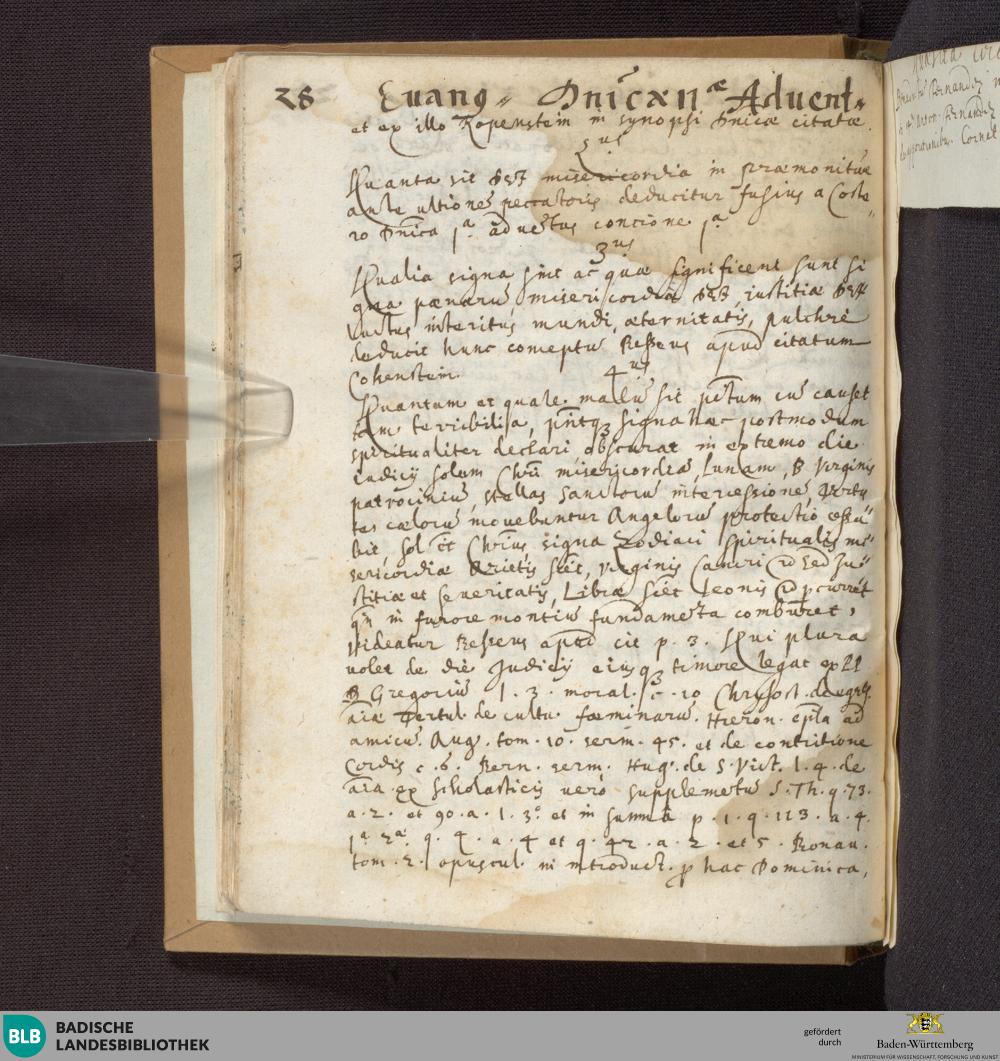 28 Euang Dnicæ Aduent
et ex illo Kopenstein in synopsi Dnicæ citatæ.
2us
Quanta sit misericordia in præmonitu
ante ultiones peccatoris deducitur fusius a Coste
ro Dnica 1a aduentus concione 1a
3us
Qualia signa sint ac quæ significent sunt si
gna pænarū misericordiæ justitiæ
luctus interitus mundi, æternitatis, pulchrè
deducit hunc conceptū Besseus apud citatum
Cohenstein.
4us
Quantum et quale malū sit pctum cū causet
tam terribilia, signa hæc postmodum
spiritualiter declari obscurat in extremo die
iudicij solem Chri misericordiæ, Lunam, B Virginis
patrociniū, stellas Sanctorū intercessiones, Virtu
tes cælorū mouebuntur Angelorū protectio cessa
bit, sol it Christus, signa Zodiaci spiritualis mi
sericordiæ Arietis scit, Virginis Cancri sed Ju
stitiæ et seueritatis, Libræ scit leonis percurret
qn in furore montiū fundamēta comburet,
videatur Besseus apud cit p. 3. Qui plura
volet de die Judicij eiusq timore legat ex PP
B Gregoriū l. 3. moral. c. 10 Chrysost.
Tertul. de cultu fæminarū. Hieron. epla ad
amicū. Aug. tom. 10. serm. 45. et de contritione
Cordis c. 6. Bern. serm. Hug. de S. Vict. l. 4. de
aīa ex scholasticis verò supplemētū S. Th. q. 73.
a. 2. et 90. a. 1. 3. et in summa p. 1. q. 113. a. 4.
1a 2a q. 4. a. 4 et q. 42. a. 2. et 5. Bonau.
tom. 2. opuscul. in introduct. p hac Dominica,
Fernandez
Anton. Fernandez
Cornel
BLB BADISCHE
LANDESBIBLIOTHEK
gefördert
durch
Baden-Württemberg
MINISTERIUM FÜR WISSENSCHAFT, FORSCHUNG UND KUNST